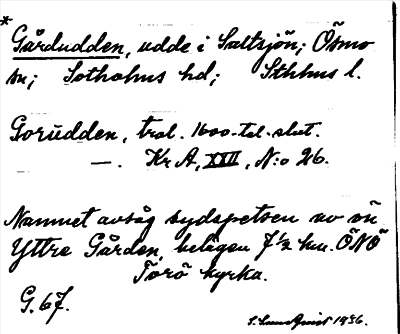 *
Gårdudden, udde i Saltsjön; Ösmo
sn; Sotholms hd; Sthlms l.
Gorudden, trol. 1600-tal. slut.
—. Kr A, XXII, N:o 26.
Namnet avsåg sydspetsen av ön
Yttre Gården, belägen 7½ km. ÖNÖ
Torö kyrka.
G. 67.
S. Lundqvist 1936.